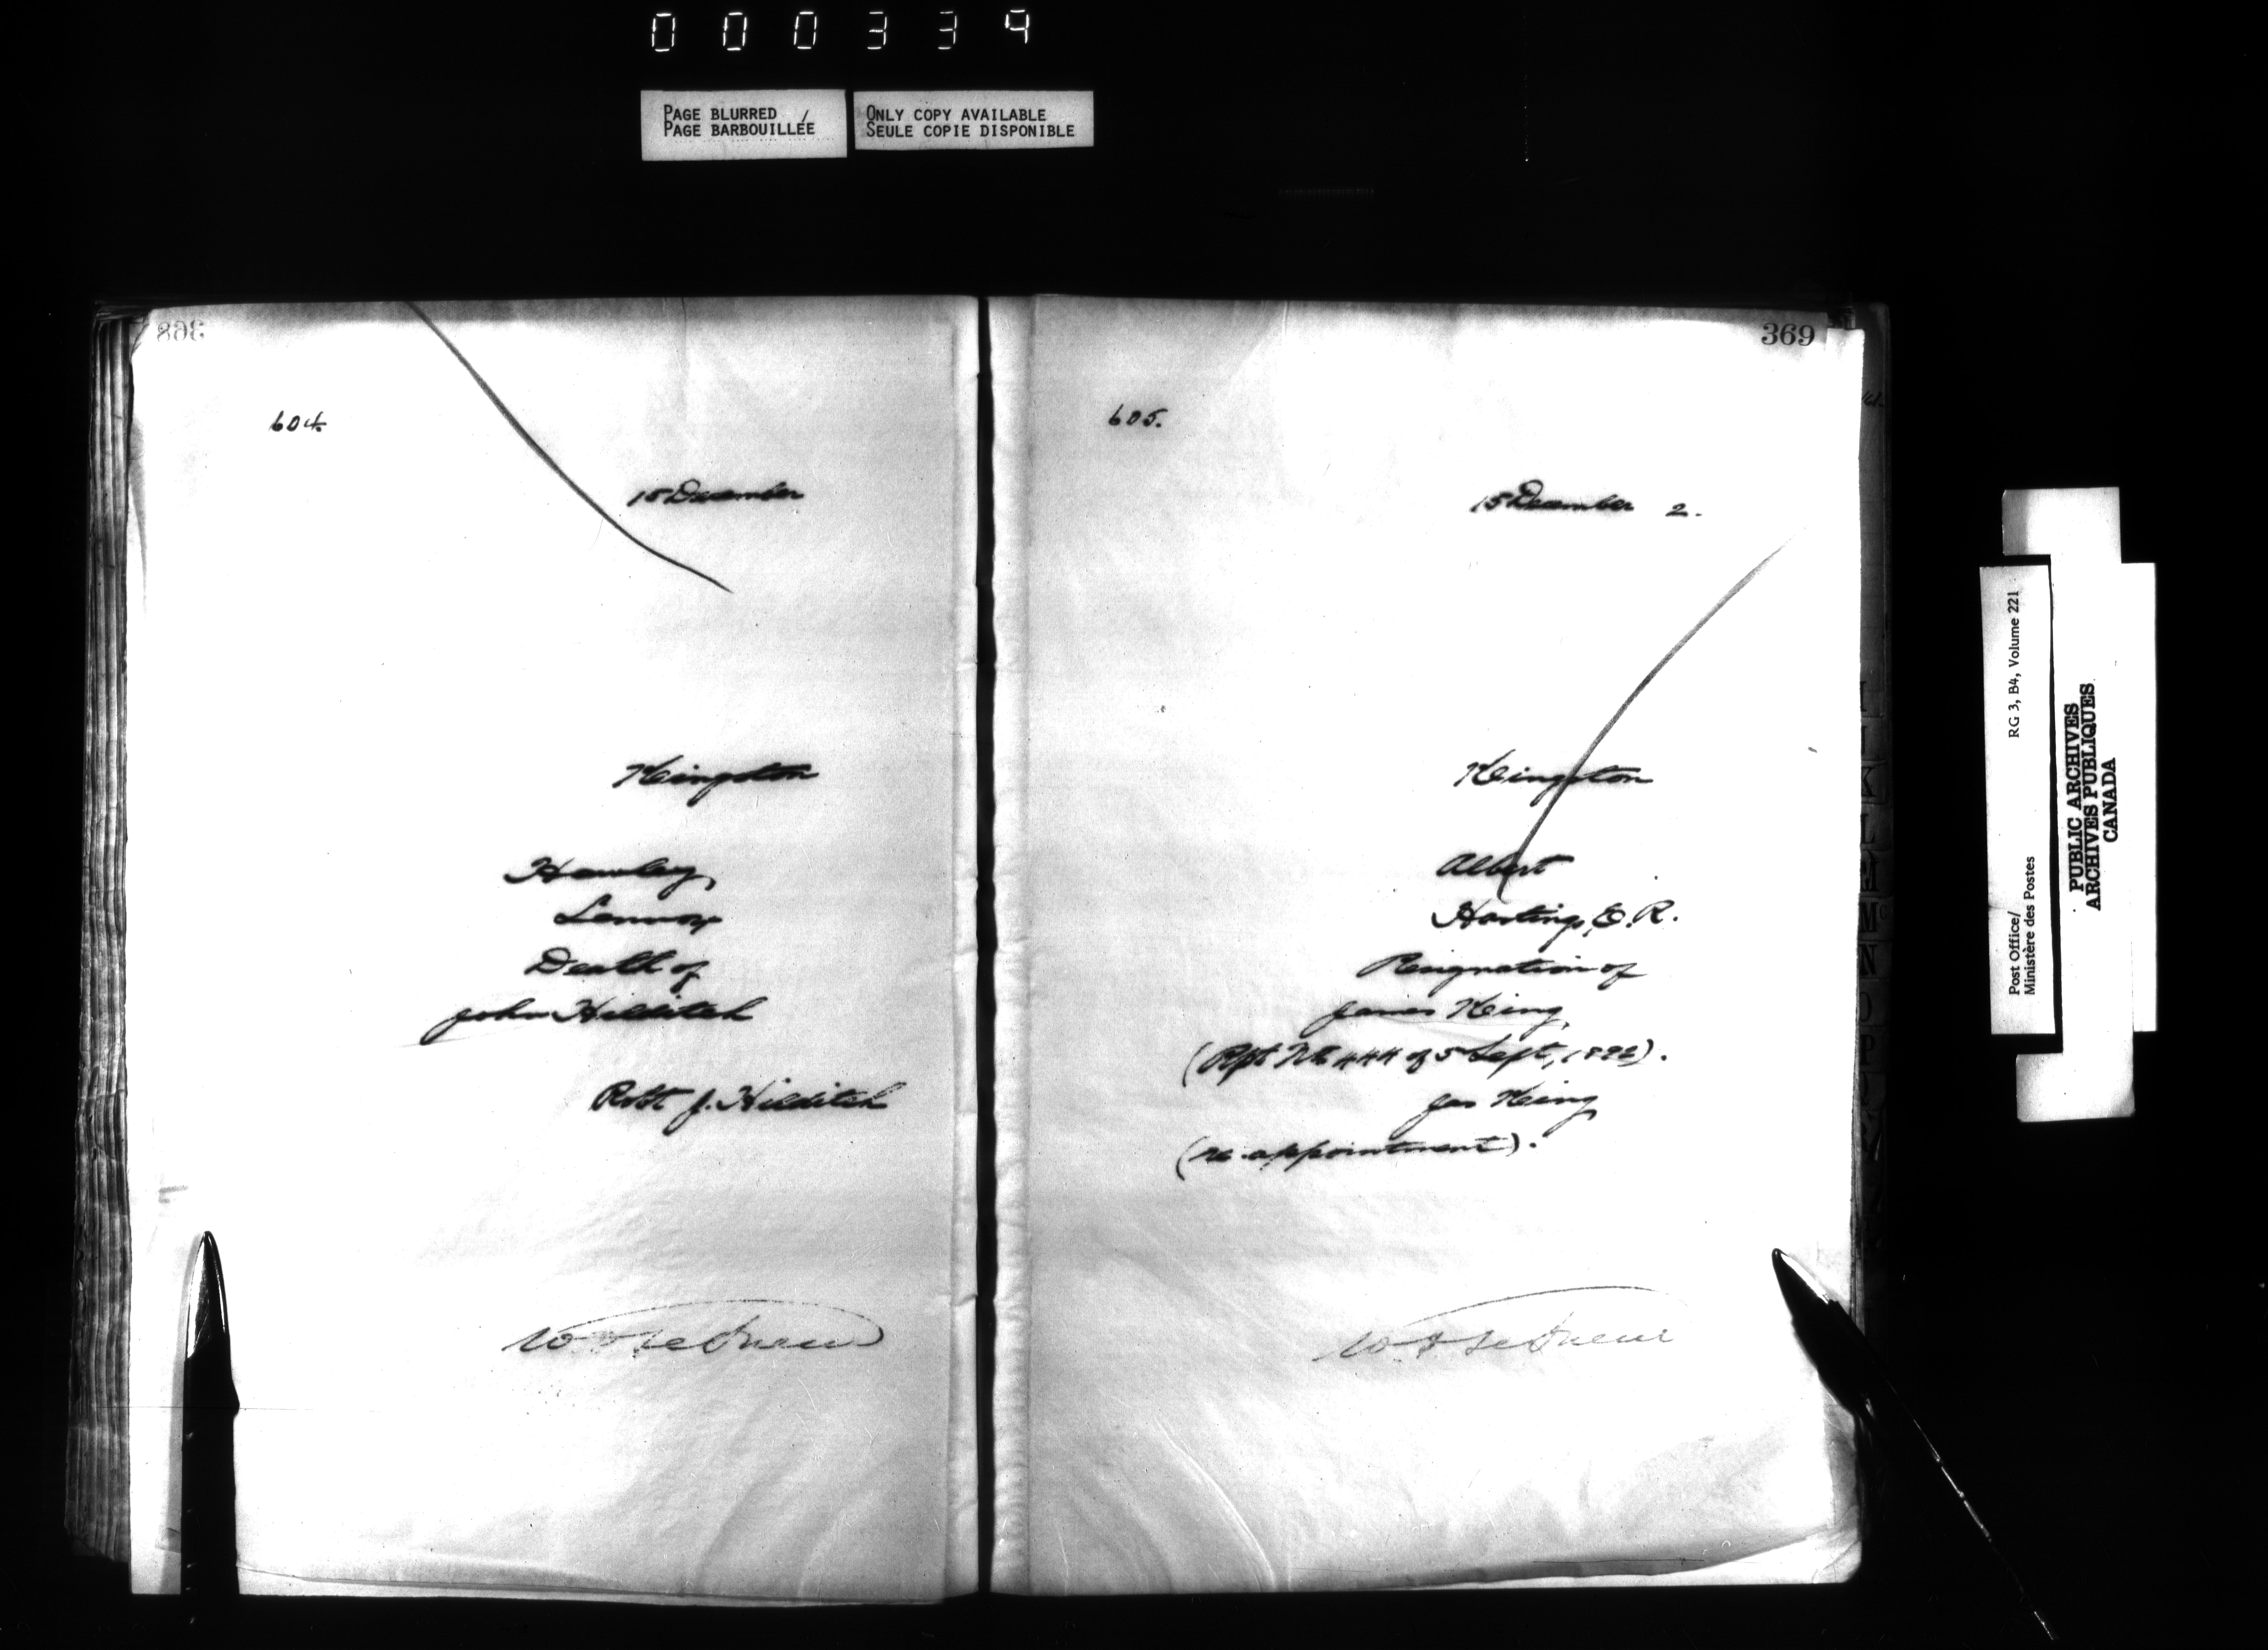 000339
PAGE BLURRED
PAGE BARBOUILLÉE
ONLY COPY AVAILABLE
SEULE COPIE DISPONIBLE
368
604.
15 December
Kingston
Hawley,
Lennox
Death of
John Hilditch
Robt J. Hilditch
369
605.
15 December 2.
Kingston
Albert
Hastings, E. R.
Resignation of
James King,
(Rpt No 444 of 5 Sept, 1892).
Jas King
(re-appointment).
Post Office/ RG 3, B4, Volume 221
Ministère des Postes
PUBLIC ARCHIVES
ARCHIVES PUBLIQUES
CANADA